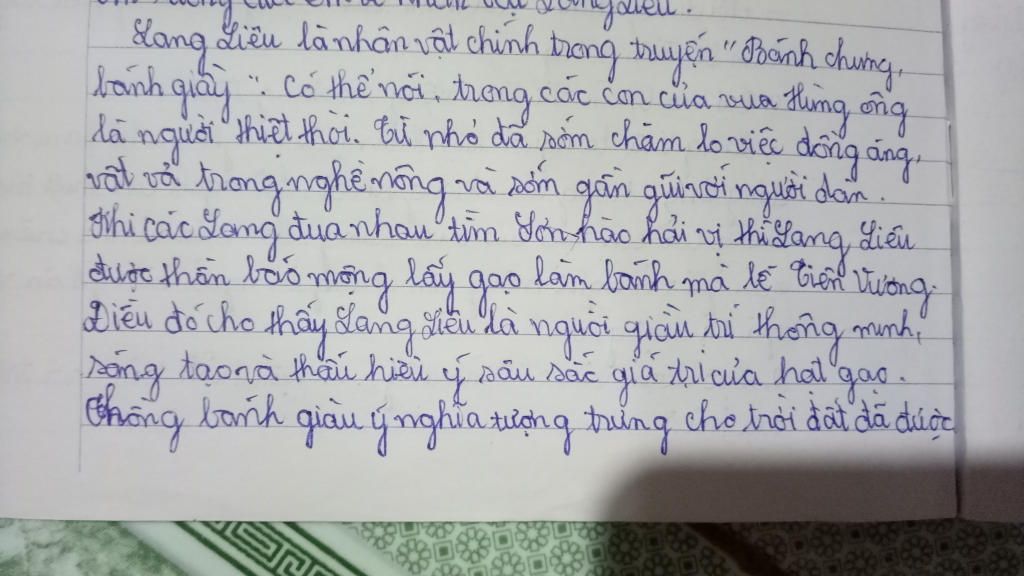 của em về nhân vật Lang Liêu.
Lang Liêu là nhân vật chính trong truyện "Bánh chưng,
bánh giầy". Có thể nói, trong các con của vua Hùng ông
là người thiệt thòi. Từ nhỏ đã sớm chăm lo việc đồng áng,
vất vả trong nghề nông và sớm gần gũi với người dân.
Khi các Lang đua nhau tìm sơn hào hải vị thì Lang Liêu
được thần báo mộng lấy gạo làm bánh mà lễ Tiên Vương.
Điều đó cho thấy Lang Liêu là người giàu trí thông minh,
sáng tạo và thấu hiểu ý sâu sắc giá trị của hạt gạo.
Chồng bánh giàu ý nghĩa tượng trưng cho trời đất đã được